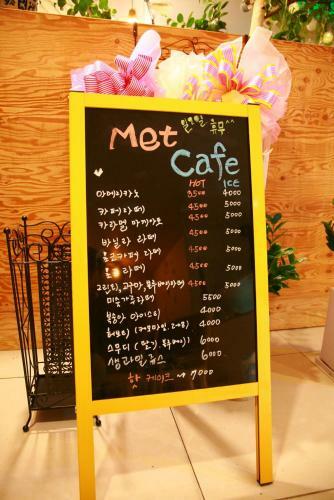 일요일 휴무^^
Met
Cafe
HOT ICE
아메리카노 3500 4000
카페라떼 4500 5000
카라멜 마끼아또 4500 5000
바닐라 라떼 4500 5000
라떼 4500 5000
라떼 4500 5000
그린티, 고구마, 4500 5000
미숫가루라떼 5500
복숭아 아이스티 4000
허브티 (캐모마일, 4000
스무디 (딸기, 블루베리) 6000
생과일 쥬스 6000
핫 케이크 ~ 7000